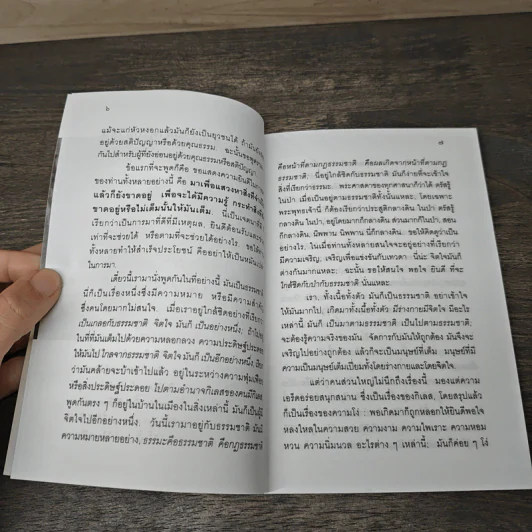 ๖
แม้จะแก่หัวหงอกแล้วมันก็ยังเป็นยุวชนได้ ถ้ามันยัง
อยู่ด้วยสติปัญญาหรือด้วยคุณธรรม ฉะนั้นขอพูดรวม
กันไปสำหรับผู้ที่ยังอ่อนอยู่ด้วยคุณธรรมหรือสติปัญญา
ข้อแรกที่จะพูดก็คือ ขอแสดงความยินดีในการมา
ของท่านทั้งหลายอย่างนี้ คือ มาเพื่อแสวงหาสิ่งที่
แล้วก็ยังขาดอยู่ เพื่อจะได้มีความรู้ กระทำสิ่งที่
ขาดอยู่หรือไม่เต็มนั้นให้มันเต็ม. นี่เป็นเจตนา
เรียกว่าเป็นการมาที่ดีที่มีเหตุผล, ยินดีต้อนรับและ
เท่าที่จะช่วยได้ หรือตามที่จะช่วยได้อย่างไร. ขอให้
ทั้งหลายทำให้สำเร็จประโยชน์ คืออย่าให้เป็นหมัน
ในการมา.
เดี๋ยวนี้เรามานั่งพูดกันในที่อย่างนี้ มันเป็นธรรมชาติ
นี่ก็เป็นเรื่องหนึ่งซึ่งมีความหมาย หรือมีความสำคัญ
ซึ่งคนโดยมากไม่สนใจ. เมื่อเราอยู่ใกล้ชิดอย่างที่เรียก
เป็นเกลอกับธรรมชาติ จิตใจ มันก็ เป็นอย่างหนึ่ง, ถ้าไป
ในที่ที่มันเต็มไปด้วยความหลอกลวง ความประดิษฐ์
ให้มันไป ไกลจากธรรมชาติ จิตใจ มันก็ เป็นอีกอย่างหนึ่ง, เรียก
ว่ามันคล้ายจะบ้าเข้าไปแล้ว อยู่ในระหว่างความฟุ่มเฟือย
หรือสิ่งประดิษฐ์ประดอย ไปตามอำนาจกิเลสของคนมีกิเลส
พูดกันตรง ๆ ก็อยู่ในบ้านในเมืองในสิ่งเหล่านี้ มันก็เป็นผู้
จิตใจไปอีกอย่างหนึ่ง. วันนี้เรามาอยู่กับธรรมชาติ มันมี
ความหมายหลายอย่าง, ธรรมะคือธรรมชาติ คือกฎธรรมชาติ
๗
คือหน้าที่ตามกฎธรรมชาติ - คือผลเกิดจากหน้าที่ตามกฎ
ธรรมชาติ: นี่อยู่ใกล้ชิดกับธรรมชาติ มันก็ง่ายที่จะเข้าใจ
สิ่งที่เรียกว่าธรรมะ. พระศาสดาของทุกศาสนาก็ว่าได้ ตรัสรู้
ในป่า เมื่ออยู่ตามธรรมชาติทั้งนั้นแหละ; โดยเฉพาะ
พระพุทธเจ้านี่ ก็ต้องเรียกว่าประสูติกลางดิน ในป่า, ตรัสรู้
กลางดิน ในป่า, อยู่โดยมากก็กลางดิน, สอนมากก็ในป่า, สอน
กลางดิน, นิพพาน นิพพานนี่ก็กลางดิน. ขอให้คิดดูว่าเป็น
อย่างไร; ในเมื่อท่านทั้งหลายสนใจจะอยู่อย่างที่เรียกว่า
มีความเจริญ, เจริญเพื่อแข่งขันกับเทวดา: นี่น่ะ จิตใจมันก็
ต่างกันมากแหละ; ฉะนั้น ขอให้สนใจ พอใจ ยินดี ที่จะ
ใกล้ชิดกับป่ากับธรรมชาติ นั้นแหละ.
เรา, ทั้งเนื้อทั้งตัว มันก็เป็นธรรมชาติ อย่าเข้าใจ
ให้มันมากไป, เกิดมาทั้งเนื้อทั้งตัว มีร่างกายมีจิตใจ มีอะไร
เหล่านี้ มันก็ เป็นมาตามธรรมชาติ เป็นไปตามธรรมชาติ;
จะต้องรู้ความจริงของมัน จัดการกับมันให้ถูกต้อง มันจึงจะ
เจริญไปอย่างถูกต้อง แล้วก็จะเป็นมนุษย์ที่เต็ม มนุษย์ที่มี
ความเป็นมนุษย์เต็มเปี่ยมทั้งโดยร่างกายและโดยจิตใจ.
แต่ว่าคนส่วนใหญ่ไม่นึกถึงเรื่องนี้ มองแต่ความ
เอร็ดอร่อยสนุกสนาน ซึ่งเป็นเรื่องของกิเลส, โดยสรุปแล้ว
ก็เป็นเรื่องของความโง่ : พอเกิดมาก็ถูกหลอกให้ยินดีพอใจ
หลงใหลในความสวย ความงาม ความไพเราะ ความหอม
หวน ความนิ่มนวล อะไรต่าง ๆ เหล่านี้; มันก็ค่อย ๆ โง่